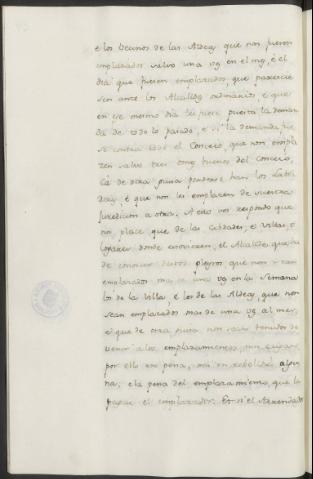 e los Vecinos de las Aldeas que non fueren
emplazados salvo una vez en el mes, e el
dia que fueren emplazados, que paresciesen
sen ante los Alcalldes ordinarios, e que
en ese mesmo dia les fuere puesta la deman
da de todo lo pasado, e si la demanda fue
se contra todo el Concejo, que non empla
zen salvo tres omes buenos del concejo,
ca de otra guisa perderse han los Labra
dores, e que non los emplazen de nuestra
Juredicion a otra. A esto vos respondo que
nos place que de las Cibdades, e Villas, e
Logares donde
de conocer destos pleytos que non sean
emplazados mas de una vez en la Semana
los de la Villa, e los de las Aldeas que non
sean emplazados mas de una vez al mes,
e que de otra guisa non sean tenudos de
venir a los emplazamientos, nin cayan
por ello en pena, nin en rebeldia algu
na, e la pena del emplazamiento, que la
pague el emplazador. Et si el Arrendador